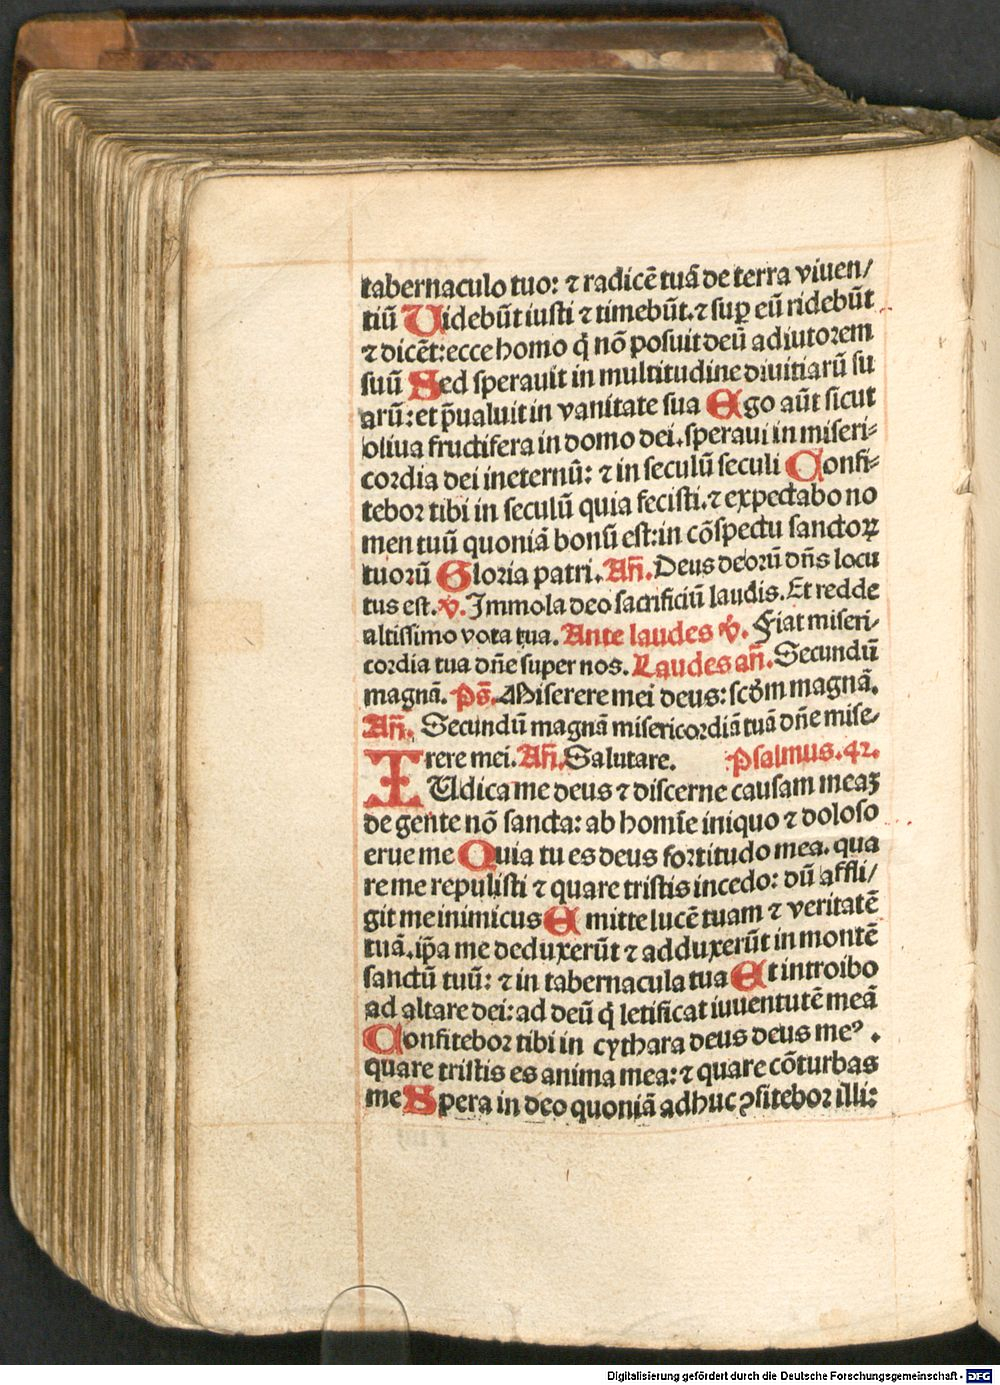 tabernaculo tuo: ⁊ radicē tuā de terra viuen/
tiū Uidebūt iusti ⁊ timebūt.⁊ suꝑ eū ridebūt
⁊ dicēt:ecce homo q̇ nō posuit deū adiutoꝛem
suū Sed sperauit in multitudine diuitiarū su
arū: et p̄ualuit in vanitate sua Ego aūt sicut
oliua fructifera in domo dei.speraui in miseri-
coꝛdia dei in eternū: ⁊ in seculū seculi Confi-
teboꝛ tibi in seculū quia fecisti.⁊ expectabo no
men tuū quoniā bonū est:in cōspectu sanctoꝝ
tuoꝛū Gloꝛia patri. Añ. Deus deoꝛū dn̄s locu
tus est. ꝟ. Immola deo sacrificiū laudis. Et redde
altissimo vota tua. Ante laudes ꝟ. Fiat miseri-
coꝛdia tua dn̄e super nos. Laudes añ. Secundū
magnā. Ps̄. Miserere mei deus: scd̄m magnā.
Añ. Secundū magnā misericoꝛdiā tuā dn̄e mise-
rere mei. Añ. Salutare. Psalmus.42.
IUdica me deus ⁊ discerne causam meaꝫ
de gente nō sancta: ab homīe iniquo ⁊ doloso
erue me Quia tu es deus foꝛtitudo mea. qua
re me repulisti ⁊ quare tristis incedo: dū affli/
git me inimicus Emitte lucē tuam ⁊ veritatē
tuā.ip̄a me deduxerūt ⁊ adduxerūt in montē
sanctū tuū: ⁊ in tabernacula tua Et introibo
ad altare dei: ad deū q̇ letificat iuuentutē meā
Confiteboꝛ tibi in cythara deus deus meꝰ.
quare tristis es anima mea: ⁊ quare cōturbas
me Spera in deo quoniā adhuc ꝯfiteboꝛ illi:
Digitalisierung gefördert durch die Deutsche Forschungsgemeinschaft - DFG